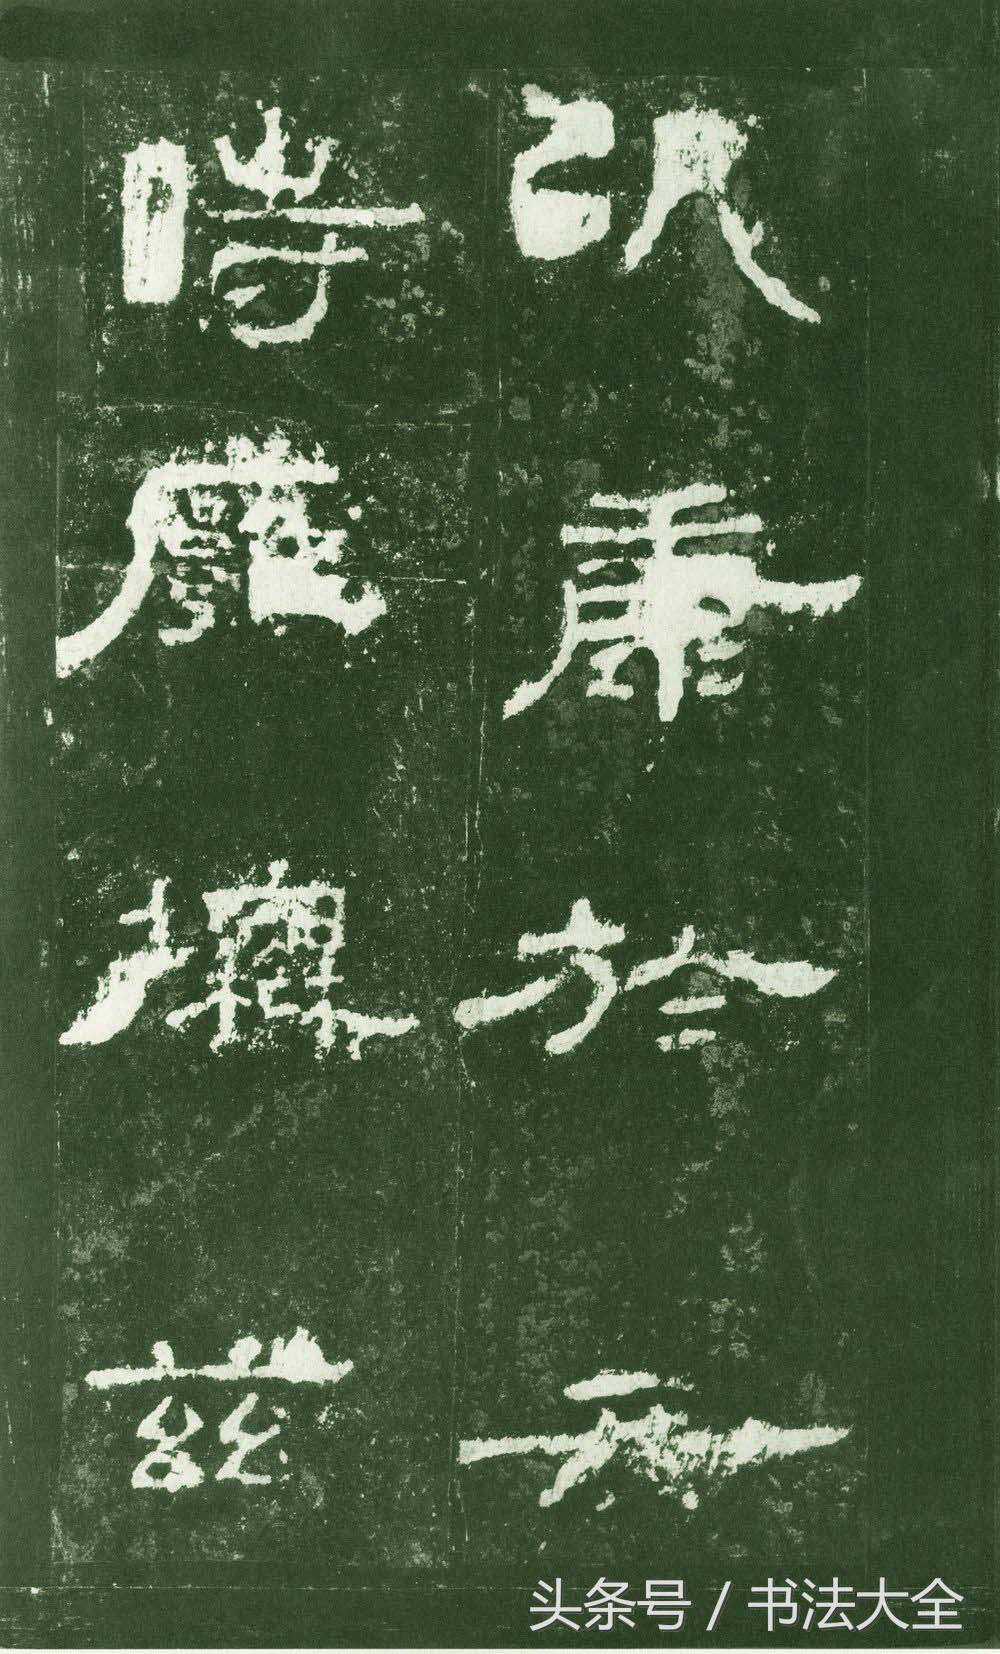 以康於亓
時廱撫茲
头条号 / 书法大全